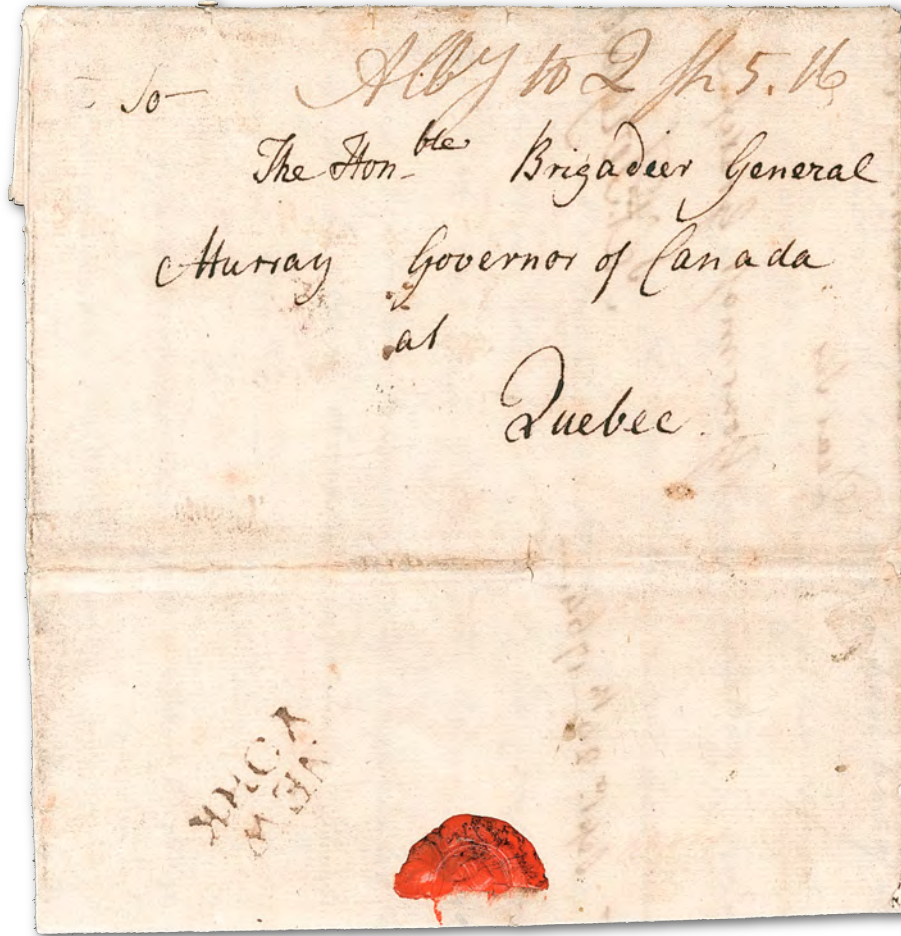 Alby to 2 sh 5.16
To
The Honble Brigadier General
Murray Governor of Canada
at
Quebec
NEW
YORK